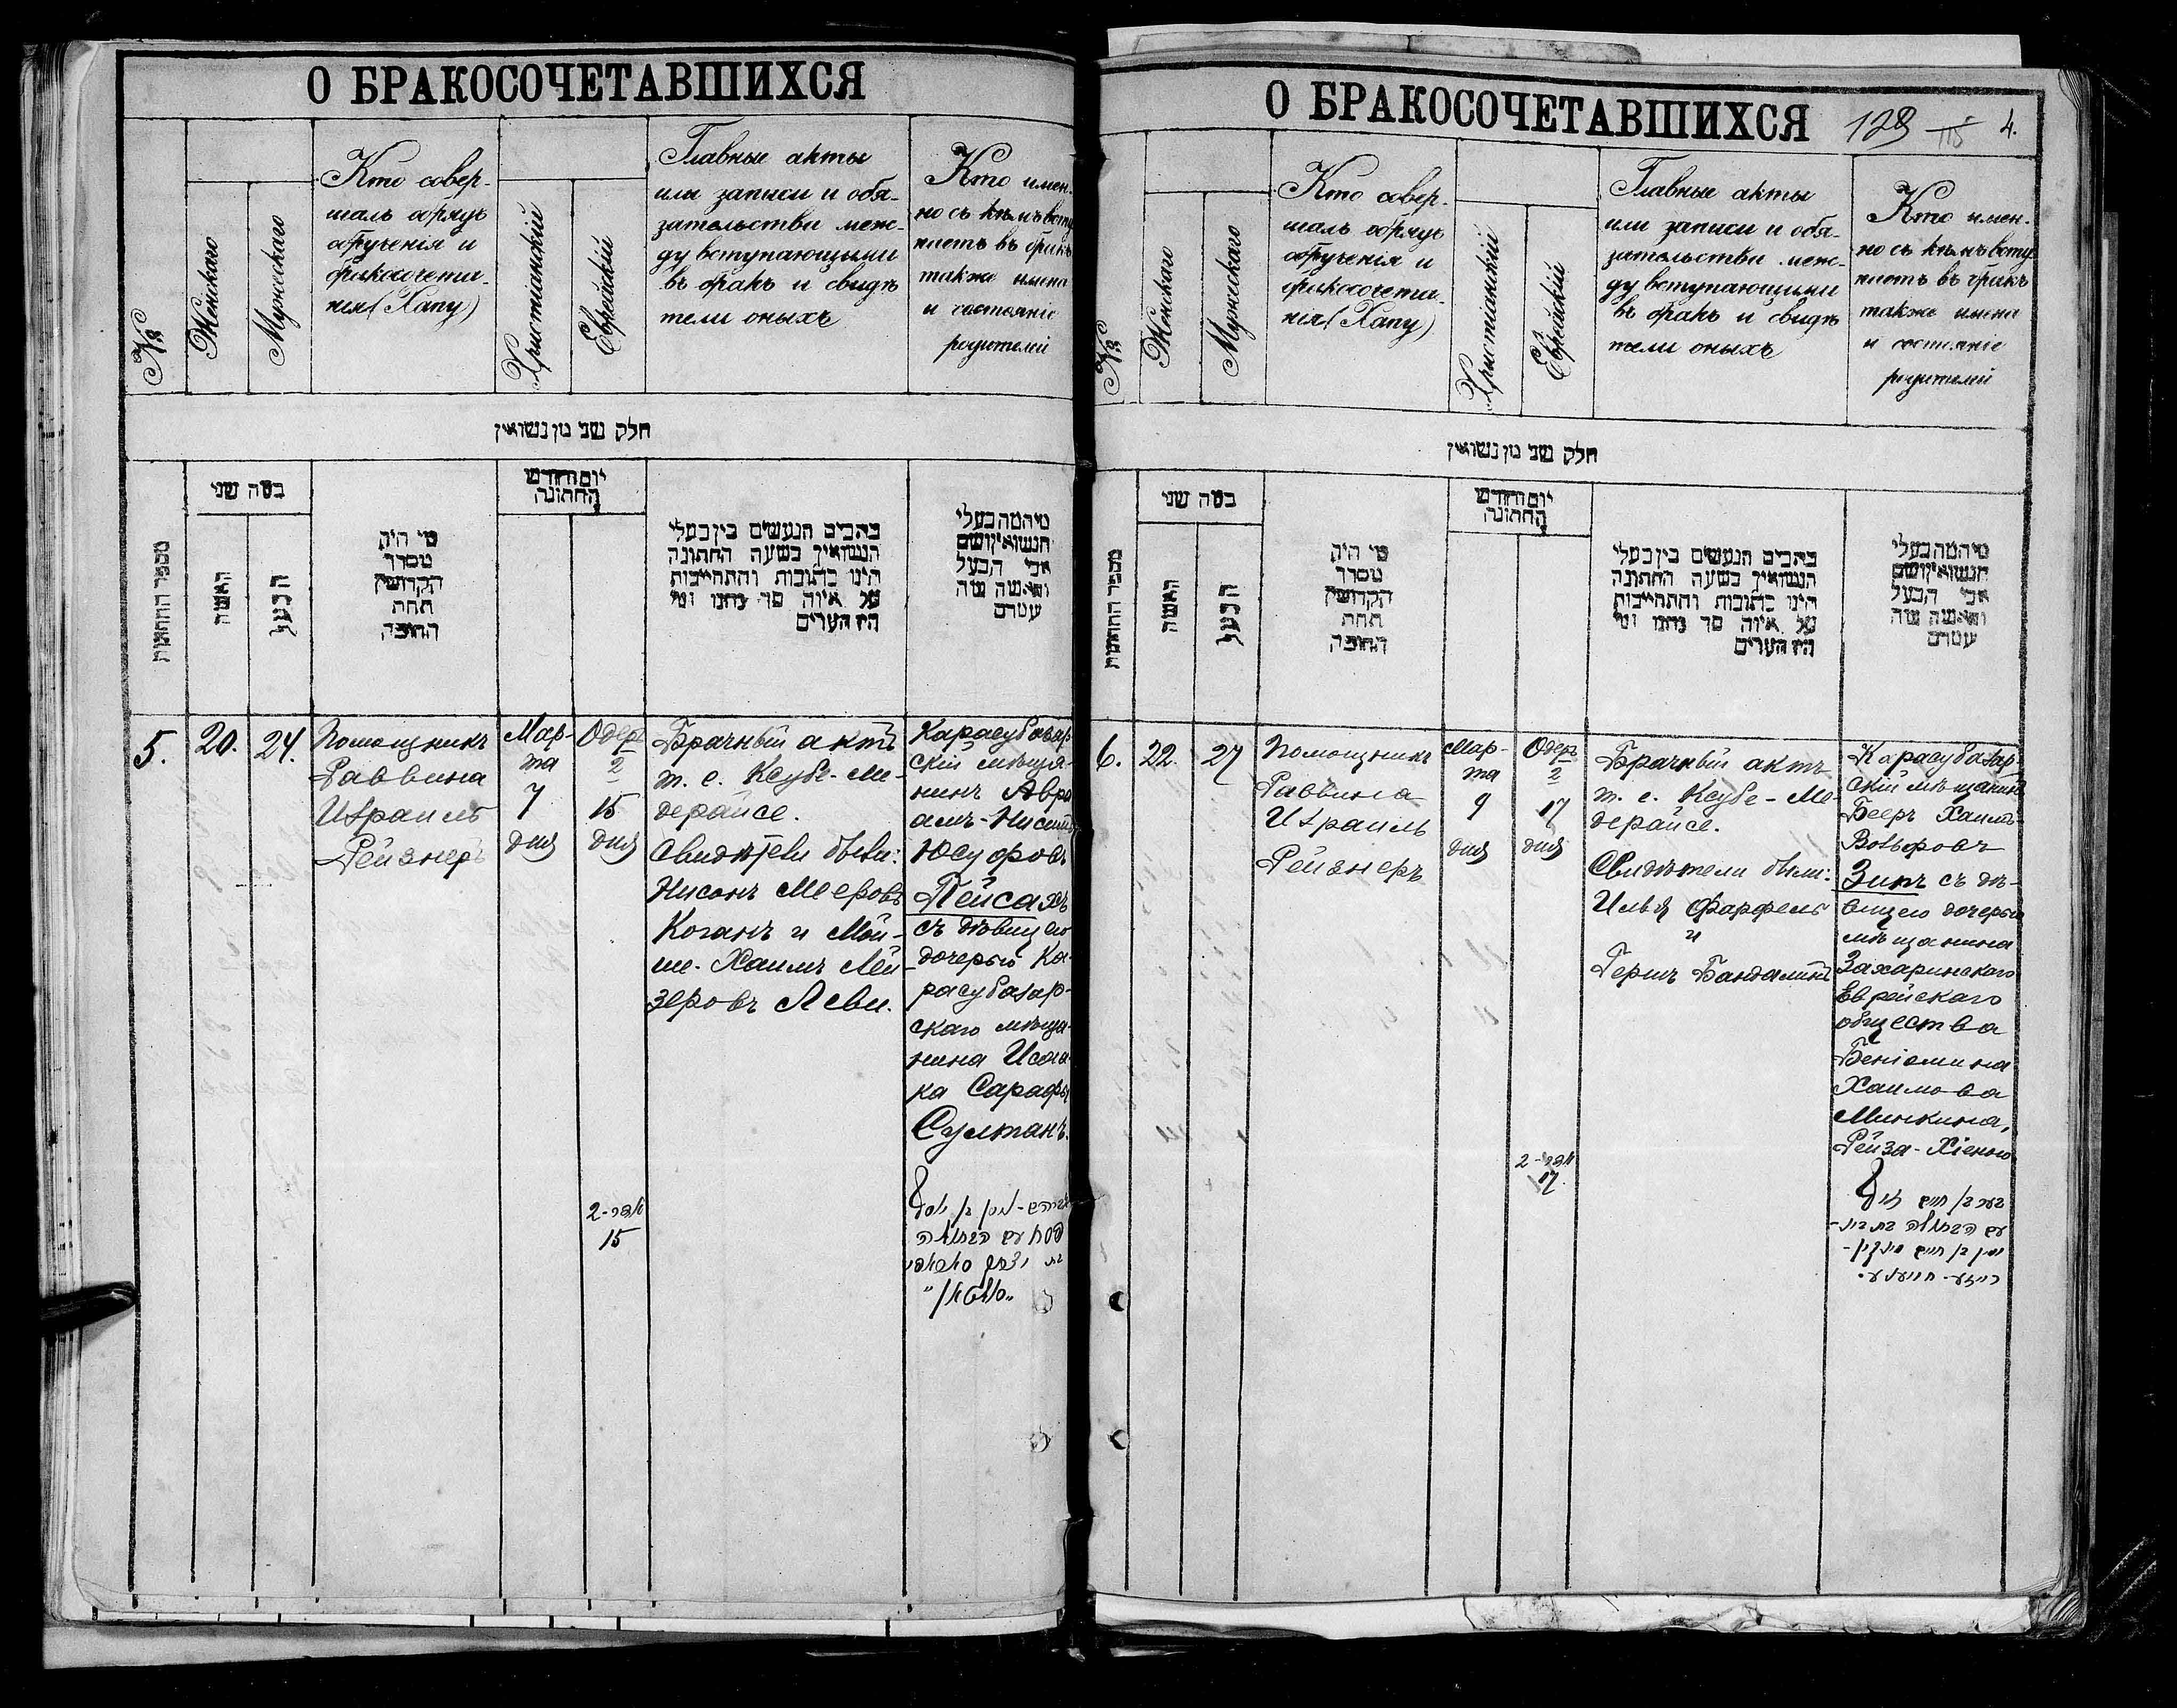 О БРАКОСОЧЕТАВШИХСЯ
№
Женскаго
Мужескаго
Кто совер-
шалъ обрядъ
обрученія и
бракосочета-
нія (Хапу)
Христіанскій
Еврейскій
Главные акты
или записи и обя-
зательстви меж-
ду вступающими
въ бракъ и свидѣ
тели оныхъ
Кто имен-
но съ кѣмъ всту
паетъ въ бракъ
также имена
и состояніе
родителей
חלק שני מן נשואין
מספר החתונות
כמה שני
האשה
הבעל
מי היה
מסדר
הקדושין
תחת
החופה
יום וחודש
החתונה
כתבים הנעשים בין בעלי
הנשואין בשעה החתונה
היינו כתובות והתחייבות
על איזה סך נתנו ומי
היו העדים
מיהמה בעלי
הנשואין ושם
אבי הבעל
והאשה
5.
20.
24.
Помощникъ
Раввина
Израиль
Рейзнеръ
Мар-
та
7
дня
Одеръ
2
15
дня
Брачный актъ
т. е. Ксубе-Ме-
дерайсе.
Свидѣтели были:
Нисонъ Мееровъ
Коганъ и Мой-
ше-Хаимъ Лей-
зеровъ Леви.
Карасубазар
скій мѣща-
нинъ Авра
амъ-Нисимъ
Юсуфовъ
Пейсахъ
съ дѣвицею
дочерью Ка-
расубазар-
скаго мѣща-
нина Исаа-
ка Сарафы
Султанъ.
אדר-2
15
אברהם-ניסן בן יוסף
פסח עם הבתולה
בת יצחק סאראפי
"סולטאן"
О БРАКОСОЧЕТАВШИХСЯ
128
115
4.
№
Женскаго
Мужескаго
Кто совер-
шалъ обрядъ
обрученія и
бракосочета-
нія (Хапу)
Христіанскій
Еврейскій
Главные акты
или записи и обя-
зательстви меж-
ду вступающими
въ бракъ и свидѣ
тели оныхъ
Кто имен-
но съ кѣмъ всту
паетъ въ бракъ
также имена
и состояніе
родителей
חלק שני מן נשואין
מספר החתונות
כמה שני
האשה
הבעל
מי היה
מסדר
הקדושין
תחת
החופה
יום וחודש
החתונה
כתבים הנעשים בין בעלי
הנשואין בשעה החתונה
היינו כתובות והתחייבות
על איזה סך נתנו ומי
היו העדים
מיהמה בעלי
הנשואין ושם
אבי הבעל
והאשה
6.
22.
27
Помощникъ
Раввина
Израиль
Рейзнеръ
Мар-
та
9
дня
Одеръ
2
17
дня
Брачный актъ
т. е. Ксубе-Ме-
дерайсе.
Свидѣтели были:
Илья Фарфель
и
Гершъ Бандалинъ
Карасубазар-
скій мѣщанинъ
Бееръ Хаимъ-
Вольфовъ
Зикъ съ дѣ-
вицею дочерью
мѣщанина
Захаринскаго
Еврейскаго
общества
Беніомина
Хаимова
Минкина,
Рейза-Хіеною
אדר-2
17
בער בן חיים זיק
עם הבתולה בת בנ-
ימין בן חיים מינקין-
רייזע-חיענע.